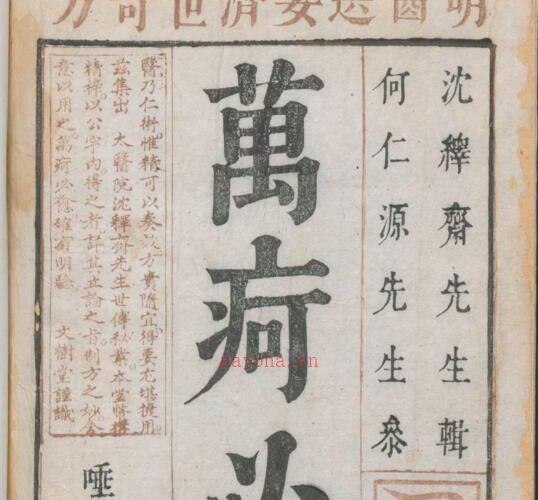 明醫選要濟世奇方
沈繹齋先生輯
何仁源先生叅
萬疴必
醫乃仁術惟精可以奏效方貴隨宜得要尤堪用
茲集出 太醫院沈繹齋先生世傳秘業本堂
精梓以公宇內得之者詳其立論之旨制方之妙會
意以用之萬疴必愈確有明驗 文樹堂謹識
唾
aayona.cn